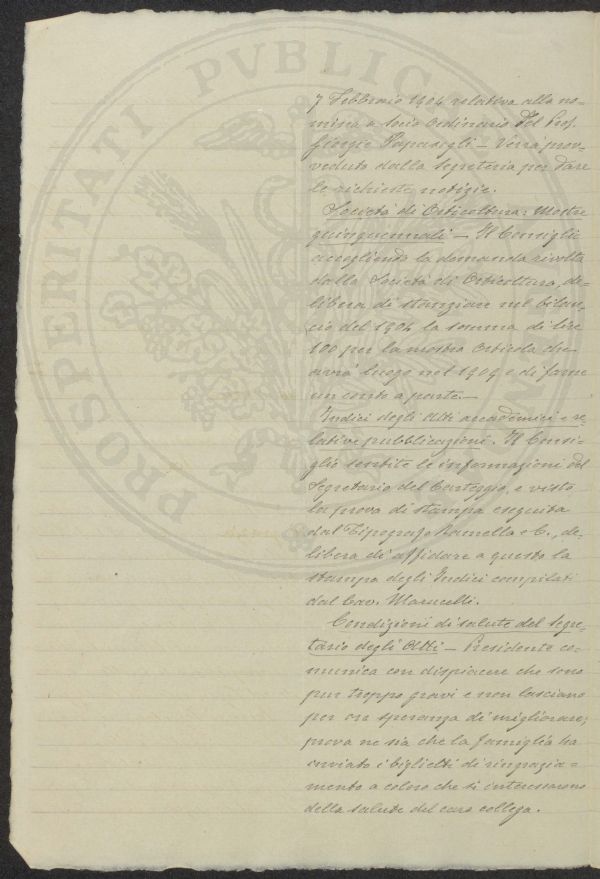 PROSPERITATI PVBLIC
7 Febbraio 1904 relativa alla no-
mina a socio Ordinario del Prof.
Giorgio Papasogli - Verrà prov-
veduto dalla Segreteria per dare
le richieste notizie.
Società di Orticoltura: Mostre
quinquennali - Il Consiglio
accogliendo la domanda rivolta
dalla Società di Orticoltura, de-
libera di stanziare nel bilan-
cio del 1904 la somma di lire
100 per la mostra Orticola che
avrà luogo nel 1909 e di farne
un conto a parte.-
Indici degli Atti accademici e re-
lative pubblicazioni. Il Consi-
glio sentite le informazioni del
Segretario del Carteggio, e visto
la prova di stampa eseguita
dal Tipografo Ramella e C., de-
libera di affidare a questo la
stampa degli Indici compilati
dal Cav. Marucelli.
Condizioni di salute del Segre-
tario degli Atti - Presidente co-
munica con dispiacere che sono
pur troppo gravi e non lasciano
per or speranza di migliorare;
prova ne sia che la famiglia ha
inviato i biglietti di ringrazia=
mento a coloro che si interessarono
della salute del caro collega.